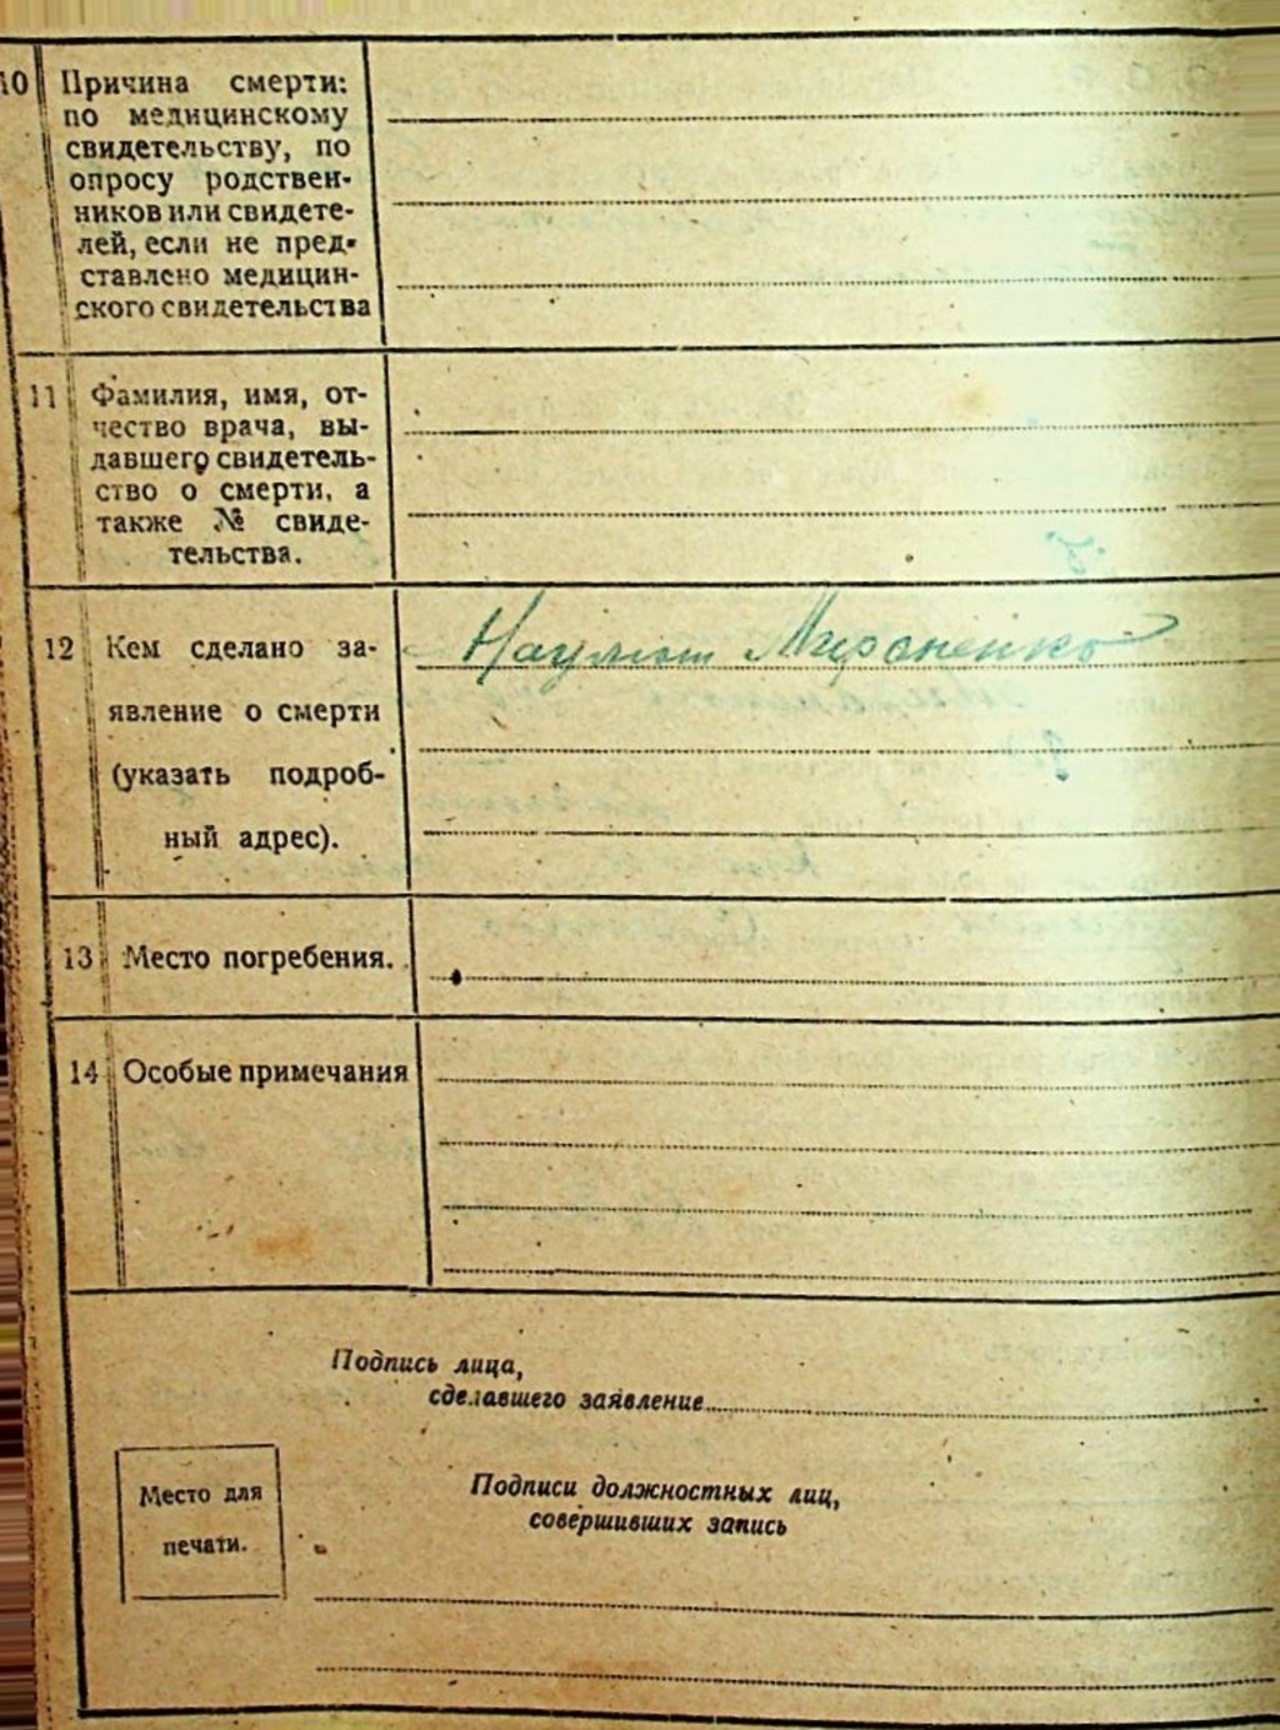 10 Причина смерти:
по медицинскому
свидетельству, по
опросу родствен-
ников или свидете-
лей, если не пред-
ставлено медицин-
ского свидетельства
11 Фамилия, имя, от-
чество врача, вы-
давшего свидетель-
ство о смерти, а
также № свиде-
тельства.
12 Кем сделано за-
явление о смерти
(указать подроб-
ный адрес).
Мироненко
13 Место погребения.
14 Особые примечания
Подпись лица,
сделавшего заявление
Место для
печати.
Подписи должностных лиц,
совершивших запись